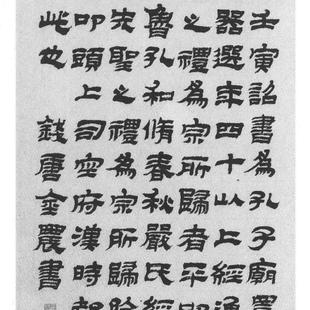 壬寅詔書為孔子廟置
器選年四十以上經通
之禮為宗所歸者平叩
魯孔和脩春秋嚴氏經
先聖之禮為宗所歸除
叩頭上司空府漢時
此也 錢唐金農書